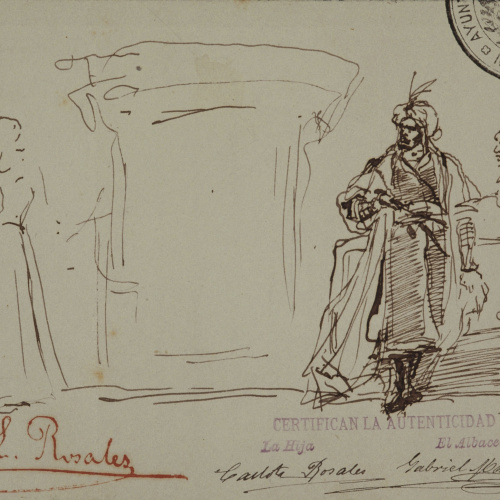 AYUN
E. Rosales
CERTIFICAN LA AUTENTICIDAD
La Hija El Albace
Carlota Rosales Gabriel